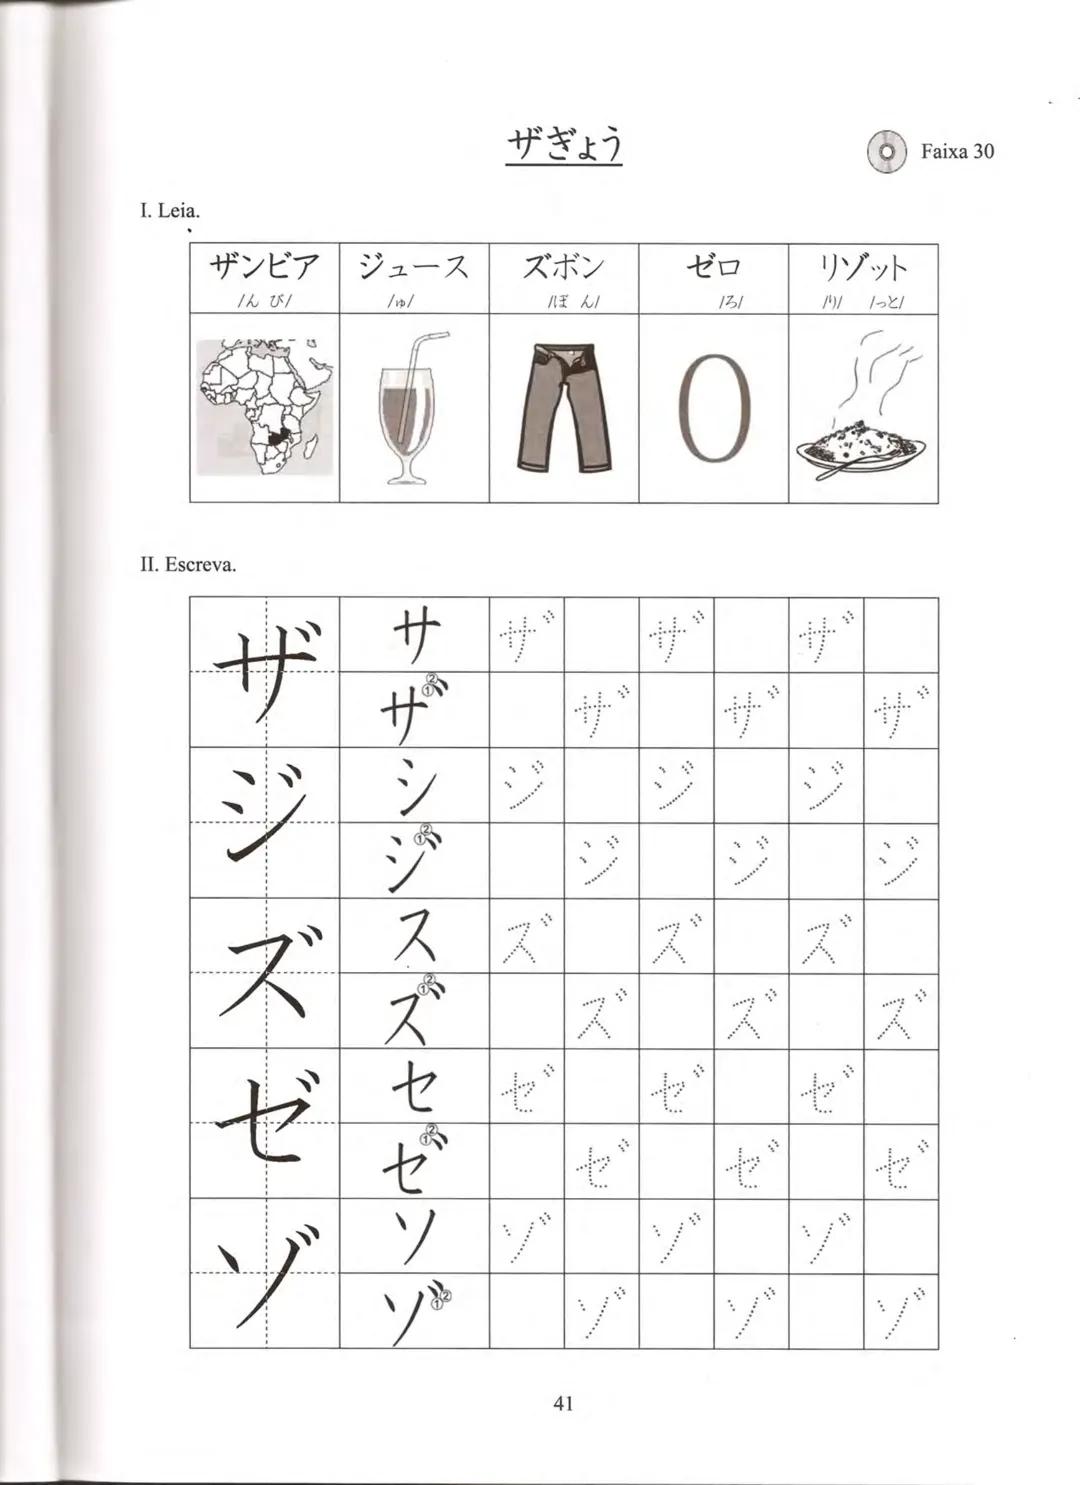 ザぎょう
Faixa 30
I. Leia.
ザンビア ジュース ズボン ゼロ リゾット
/ん び/ /ゅ/ /ぼ ん/ /ろ/ /り/ /っと/
0
II. Escreva.
ザ サ ザ ザ ザ
① ② ザ ザ ザ ザ
ジ シ ジ ジ ジ
① ② ジ ジ ジ ジ
ズ ス ズ ズ ズ
① ② ズ ズ ズ ズ
ゼ セ ゼ ゼ ゼ
① ② ゼ ゼ ゼ ゼ
ゾ ソ ゾ ゾ ゾ
① ② ゾ ゾ ゾ ゾ
41